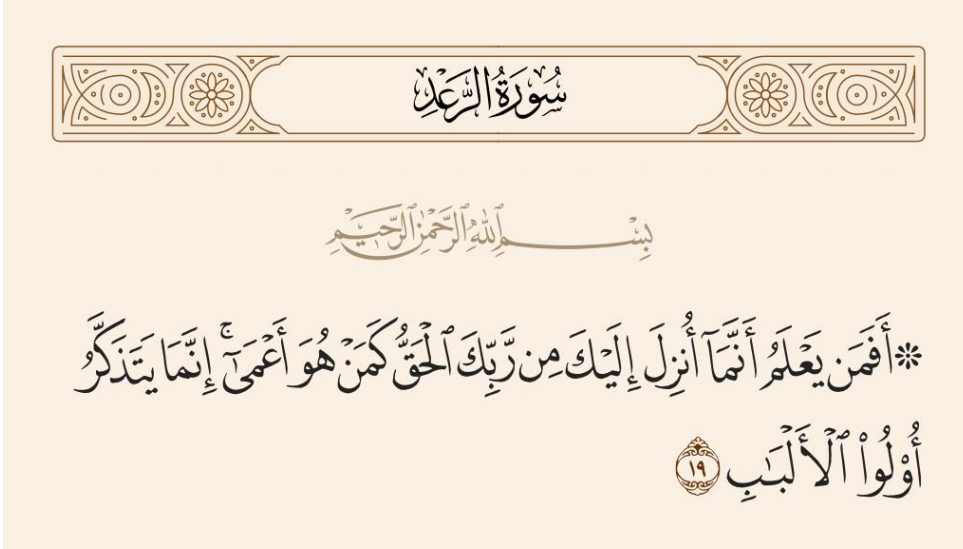 سُورَةُ الرَّعْدِ
بِسْمِ ٱللَّهِ ٱلرَّحْمَٰنِ ٱلرَّحِيمِ
۞أَفَمَن يَعْلَمُ أَنَّمَآ أُنزِلَ إِلَيْكَ مِن رَّبِّكَ ٱلْحَقُّ كَمَنْ هُوَ أَعْمَىٰٓۚ إِنَّمَا يَتَذَكَّرُ
أُوْلُواْ ٱلْأَلْبَٰبِ ١٩